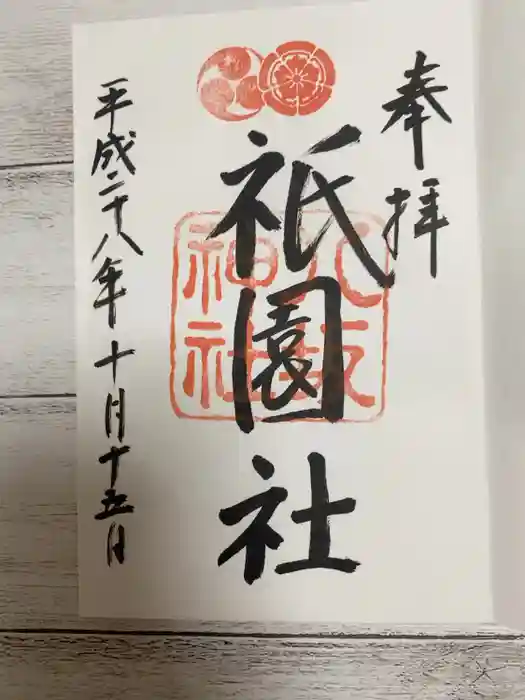 奉拝
八坂神社
祇園社
平成二十八年十月十五日